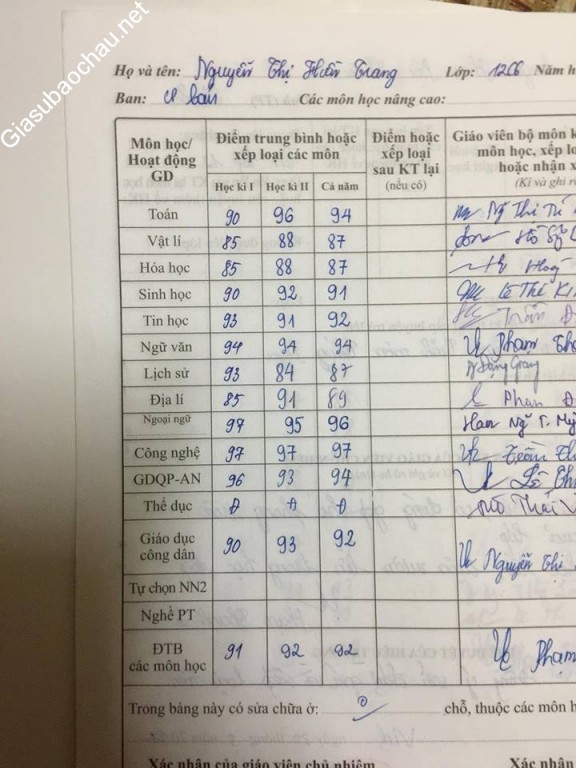 Giasubaochau.net
Họ và tên: Nguyễn Thị Hiền Trang Lớp: 12C6 Năm h
Ban: cơ bản Các môn học nâng cao:
Môn học/ Hoạt động GD Điểm trung bình hoặc xếp loại các môn Điểm hoặc xếp loại sau KT lại (nếu có) Giáo viên bộ môn k môn học, xếp lo hoặc nhận x (Kí và ghi r
Học kì I Học kì II Cả năm
Toán 90 96 94 Thị
Vật lí 85 88 87 Hồ
Hóa học 85 88 87
Sinh học 90 92 91 Lê Thị Ki
Tin học 93 91 92 Trần
Ngữ văn 94 94 94 Phạm
Lịch sử 93 84 87
Địa lí 85 91 89 Phan
Ngoại ngữ 97 95 96
Công nghệ 97 97 97
GDQP-AN 96 93 94 Lê
Thể dục Đ Đ Đ Thái
Giáo dục công dân 90 93 92 Nguyễn Thị
Tự chọn NN2
Nghề PT
ĐTB các môn học 91 92 92 Phạm
Trong bảng này có sửa chữa ở: 0 chỗ, thuộc các môn h
Xác nhận của giáo viên chủ nhiệm Xác nhận